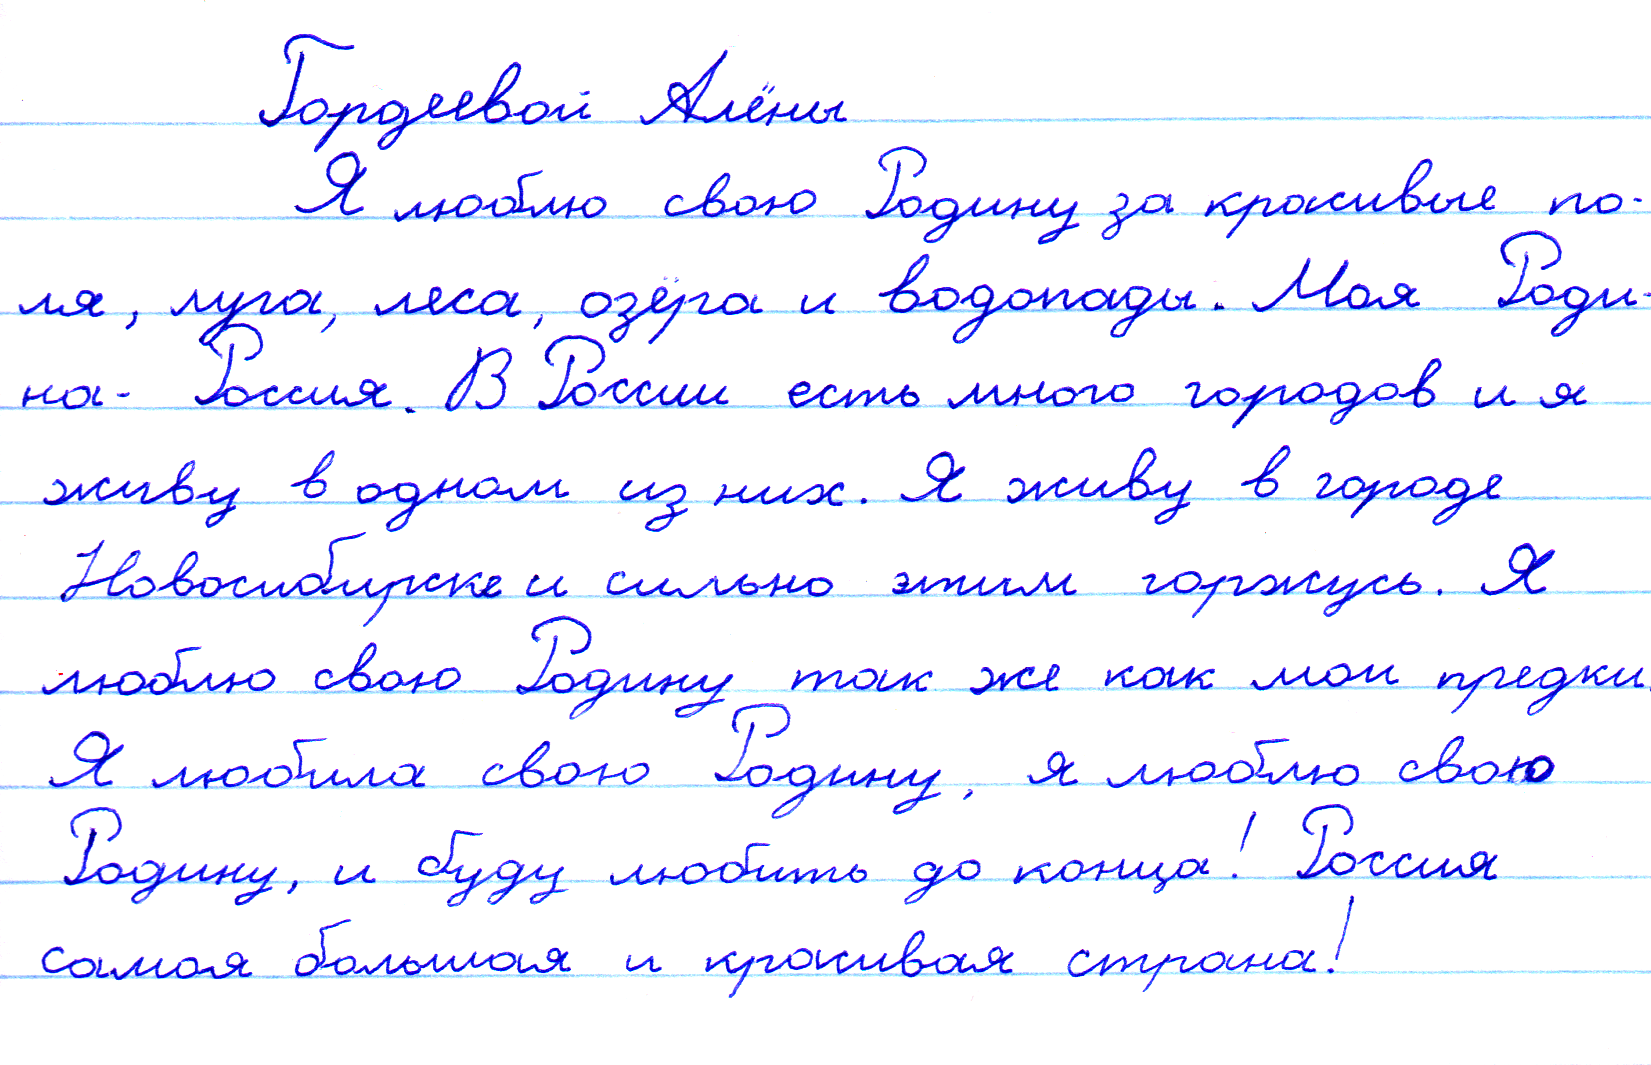 Гордеевой Алёны
Я люблю свою Родину за красивые по-
ля, луга, леса, озёра и водопады. Моя Роди-
на- Россия. В России есть много городов и я
живу в одном из них. Я живу в городе
Новосибирске и сильно этим горжусь. Я
люблю свою Родину так же как мои предки.
Я любила свою Родину, я люблю свою
Родину, и буду любить до конца! Россия
самая большая и красивая страна!